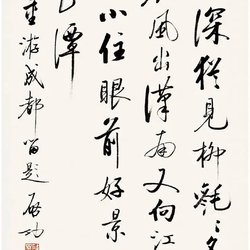 深猶見柳毿〻
風出漢南又向江
小住眼前好景
潭
重游成都留題 啓功